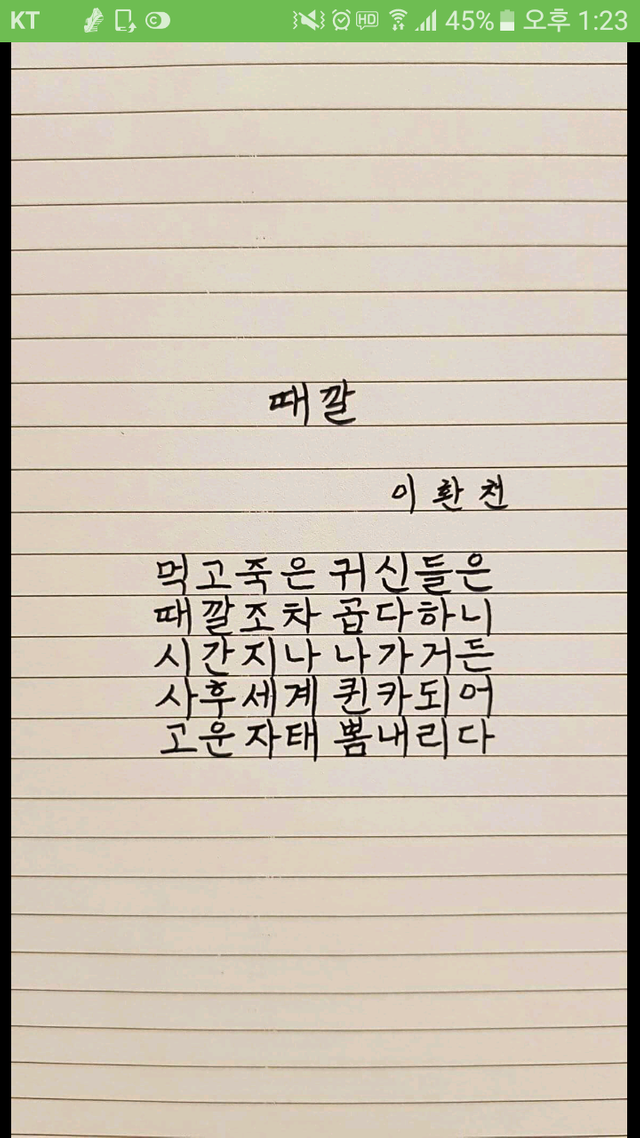 KT 45% 오후 1:23
때깔
이환천
먹고죽은 귀신들은
때깔조차 곱다하니
시간지나 나가거든
사후세계 퀸카되어
고운자태 뽐내리다